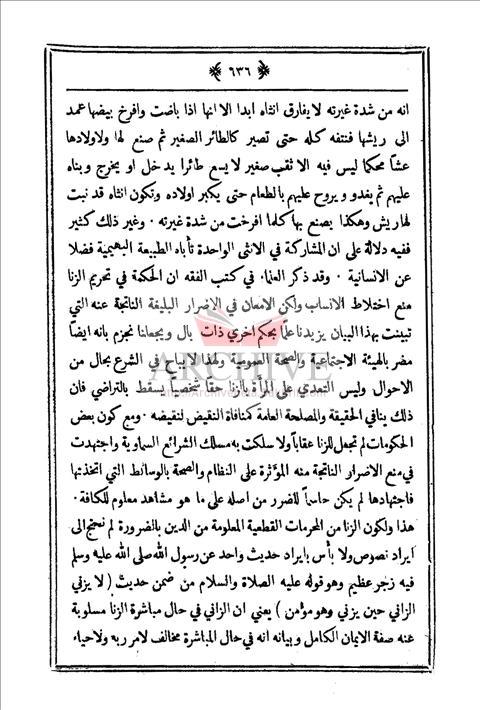 ﴿ ٦٣٦ ﴾
انه من شدة غيرته لا يفارق انثاه ابدا الا انها اذا باضت وافرخ بيضها عمد
الى ريشها فنتفه كله حتى تصير كالطائر الصغير ثم صنع لها ولاولادها
عشا محكما ليس فيه الا ثقب صغير لا يسع طائرا يدخل او يخرج وبناه
عليهم ثم يغدو ويروح عليهم بالطعام حتى يكبر اولاده وتكون انثاه قد نبت
لها ريش وهكذا يصنع بها كلما افرخت من شدة غيرته ٠ وغير ذلك كثير
ففيه دلالة على ان المشاركة في الانثى الواحدة تأباه الطبيعة البهيمية فضلا
عن الانسانية ٠ وقد ذكر العلماء في كتب الفقه ان الحكمة في تحريم الزنا
منع اختلاط الانساب ولكن الامعان في الاضرار البليغة الناتجة عنه التي
تبينت بهذا البيان يزيدنا علمًا بحكم اخرى ذات بال ويجعلنا نجزم بانه ايضًا
مضر بالهيئة الاجتماعية والصحة العمومية ولهذا لا يباح في الشرع بحال من
الاحوال وليس التعدي على المرأة بالزنا حقًا شخصيًا يسقط بالتراضي فان
ذلك ينافي الحقيقة والمصلحة العامة كمنافاة النقيض لنقيضه ٠ ومع كون بعض
الحكومات لم تجعل للزنا عقابًا ولا سلكت به مسلك الشرائع السماوية واجتهدت
في منع الاضرار الناتجة منه المؤثرة على النظام والصحة بالوسائط التي اتخذتها
فاجتهادها لم يكن حاسمًا للضرر من اصله على ما هو مشاهد معلوم للكافة ٠
هذا ولكون الزنا من المحرمات القطعية المعلومة من الدين بالضرورة لم نحتج الى
ايراد نصوص ولا بأس بايراد حديث واحد عن رسول الله صلى الله عليه وسلم
فيه زجر عظيم وهو قوله عليه الصلاة والسلام من ضمن حديث ( لا يزني
الزاني حين يزني وهو مؤمن ) يعني ان الزاني في حال مباشرة الزنا مسلوبة
عنه صفة الايمان الكامل وبيانه انه في حال المباشرة مخالف لامر ربه ولا حياء
ARCHIVE